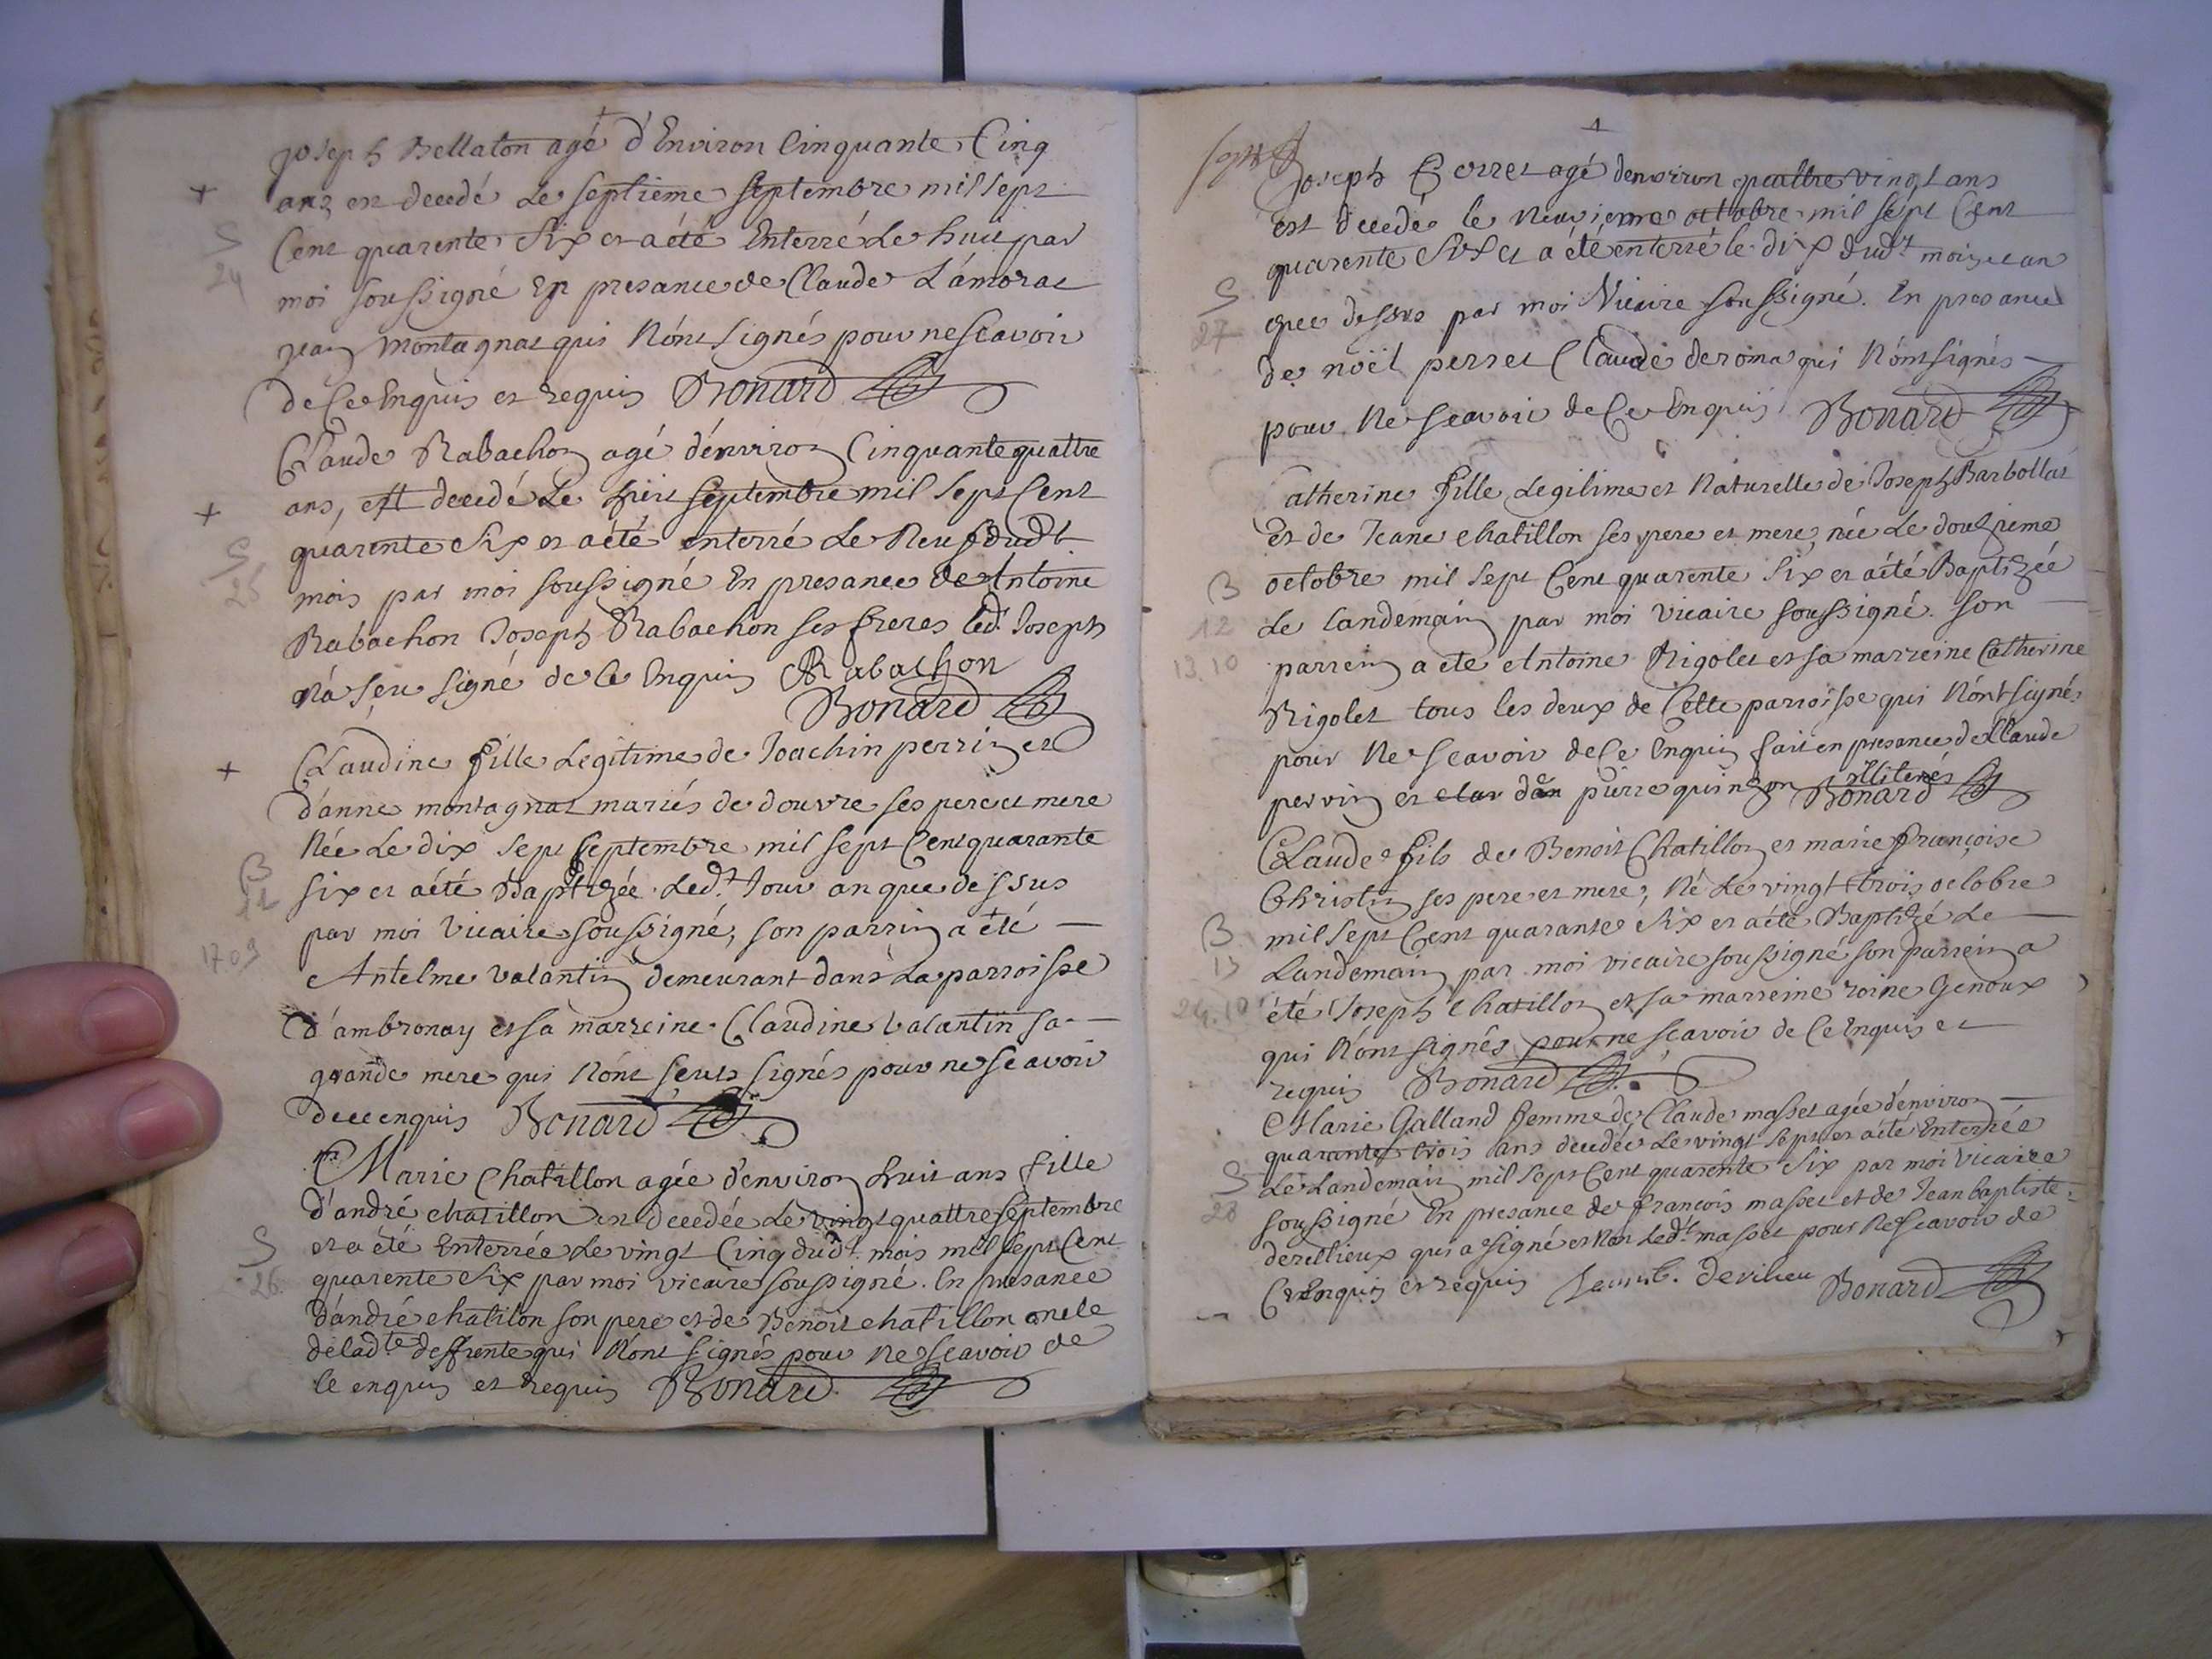 Joseph Bellaton agé d'Environ Cinquante Cinq
ans, est decedé Le septieme septembre mil sept
Cent quarente Six et a été Enterré Le huit par
moi soussigné En presance de Claude L'amoral
jean montagnat qui N'ont signés pour ne scavoir
de Ce Enquis et requis Bonard
Claude Rabachon agé d'environ Cinquante quattre
ans, est decedé Le huit septembre mil sept Cent
quarente Six et a été enterré Le Neuf dudt
mois par moi soussigné En presance de Antoine
Rabachon Joseph Rabachon ses freres led. Joseph
N'a seu signé de Ce Enquis Rabachon
Bonard
Claudine fille Legitime de Joachin perrin et
d'anne montagnat mariés de douvre ses pere et mere
Née Le dix sept septembre mil sept Cent quarante
six et a été Baptizée Ledt Jour an que dessus
par moi Vicaire soussigné, son parrin a été
Antelme Valantin demeurant dans La parroisse
d'ambronay et sa marreine Claudine Valantin sa
grande mere qui N'ont seus signés pour ne scavoir
de ce enquis Bonard
Marie Chatillon agée d'environ huit ans fille
d'andré chatillon est decedée Le vingt quattre septembre
et a été Enterrée Le vingt Cinq dudt mois mil sept Cent
quarente Six par moi vicaire soussigné. En presance
d'andré chatilon son pere et de Benoit chatillon oncle
de ladte deffunte qui N'ont signés pour Ne scavoir de
Ce enquis et requis Bonard
S 24
S 25
B 11
17 09
S 26
Joseph perret agé denviron quattre vingt ans
est decedé le Neuvieme octobre mil sept Cent
quarente Six et a été enterré le dix dudt mois et an
que dessus par moi Vicaire soussigné. En presance
de noël perret Claude deroma qui N'ont signés
pour Ne scavoir de Ce Enquis Bonard
Catherine fille Legitime et Naturelle de Joseph Barbollat
et de Jeane chatillon ses pere et mere, née Le douzieme
octobre mil sept Cent quarente Six et a été Baptizée
Le landemain par moi vicaire soussigné. son
parrein a ete Antoine Rigolet et sa marreine Catherine
Rigolet tous les deux de Cette parroisse qui N'ont signés
pour Ne scavoir de Ce Enquis fait en presance de Claude
perrin et pierre quinson illiterés Bonard
Claude fils de Benoit Chatillon et marie françoise
Christin ses pere et mere, Né Le vingt trois octobre
mil sept Cent quarante Six et a été Baptizé Le
Landemain par moi vicaire soussigné son parrein a
été Joseph Chatillon et sa marreine roine Genoux
qui N'ont signés pour ne scavoir de Ce Enquis et
requis Bonard
Marie Galland femme de Claude masset agée d'environ
quarante trois ans decedée Le vingt sept et a été Enterrée
Le Landemain mil sept Cent quarente Six par moi Vicaire
soussigné En presance de françois masset et de Jean baptiste
derillieux qui a signé et Non Ledt masset pour Ne scavoir de
Ce Enquis et requis Bonard
S 27
B 12
13.10
B 13
24.10
S 28